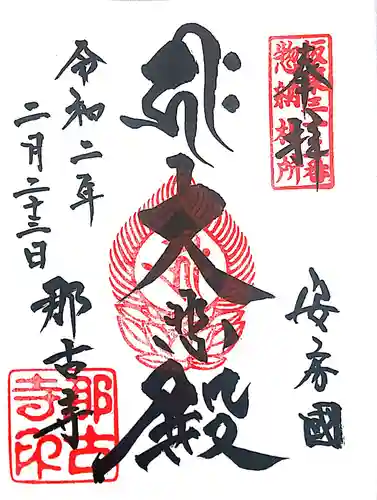 奉拝
坂東三十三番
惣納札所
安房國
大悲殿
令和二年
二月二十三日
那古寺
那古
寺印